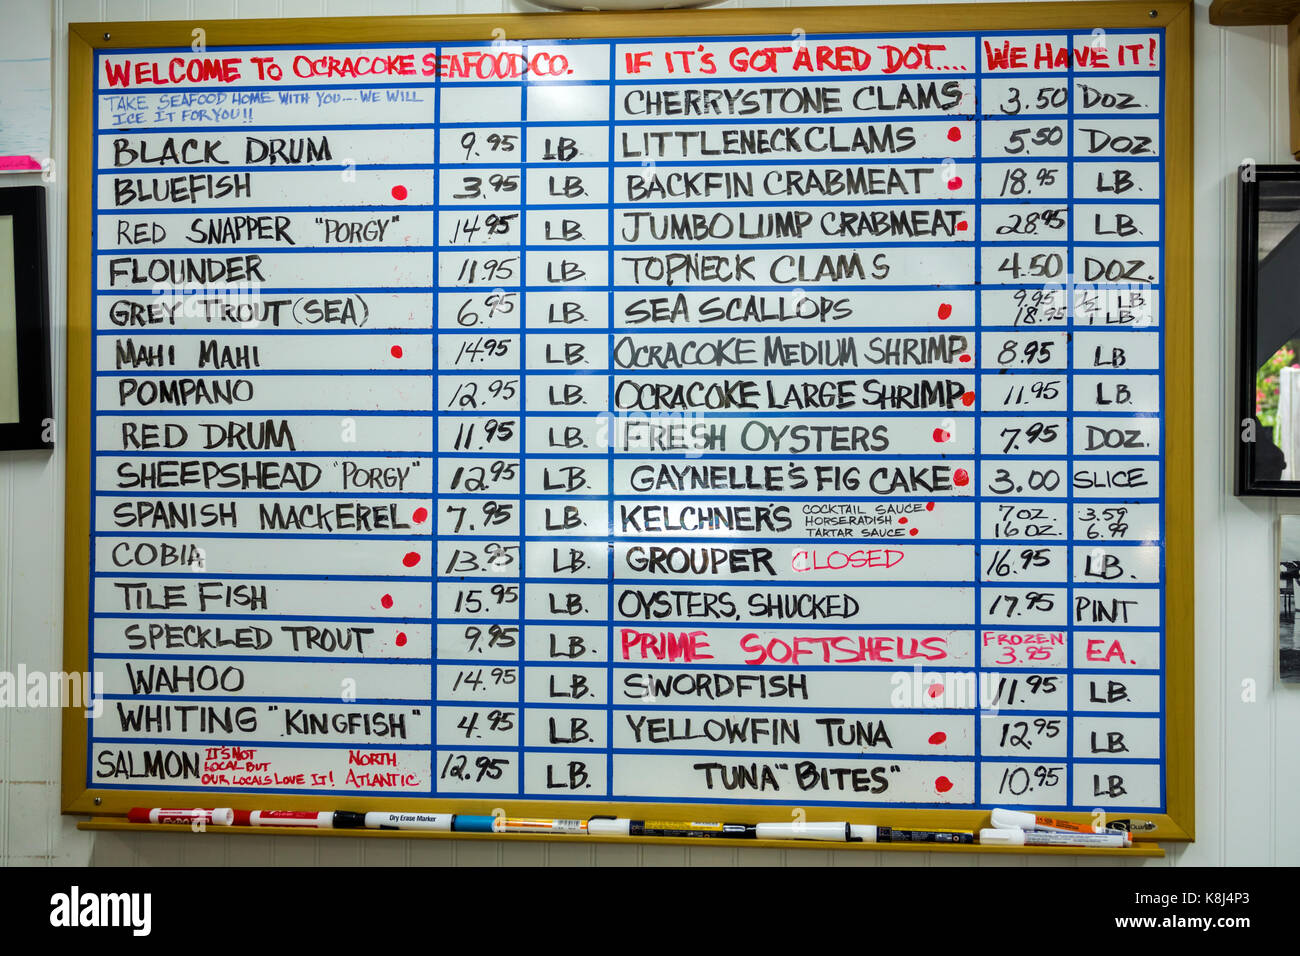 WELCOME TO OCRACOKE SEAFOOD CO. IF IT'S GOT A RED DOT.... WE HAVE IT!
TAKE SEAFOOD HOME WITH YOU.... WE WILL
ICE IT FOR YOU!!
CHERRYSTONE CLAMS 3.50 DOZ.
BLACK DRUM 9.95 LB. LITTLENECK CLAMS 5.50 DOZ.
BLUEFISH 3.95 LB. BACKFIN CRABMEAT 18.95 LB.
RED SNAPPER "PORGY" 14.95 LB. JUMBO LUMP CRABMEAT 28.95 LB.
FLOUNDER 11.95 LB. TOPNECK CLAMS 4.50 DOZ.
GREY TROUT (SEA) 6.95 LB. SEA SCALLOPS 9.95 1/2 LB.
18.95 1 LB.
MAHI MAHI 14.95 LB. OCRACOKE MEDIUM SHRIMP 8.95 LB
POMPANO 12.95 LB. OCRACOKE LARGE SHRIMP 11.95 LB
RED DRUM 11.95 LB. FRESH OYSTERS 7.95 DOZ.
SHEEPSHEAD "PORGY" 12.95 LB. GAYNELLE'S FIG CAKE 3.00 SLICE
SPANISH MACKEREL 7.95 LB. KELCHNER'S COCKTAIL SAUCE 7 OZ. 3.59
HORSERADISH 16 OZ. 6.99
TARTAR SAUCE
COBIA 13.95 LB. GROUPER CLOSED 16.95 LB.
TILE FISH 15.95 LB. OYSTERS, SHUCKED 17.95 PINT
SPECKLED TROUT 9.95 LB. PRIME SOFTSHELLS FROZEN
3.95 EA.
WAHOO 14.95 LB. SWORDFISH 11.95 LB.
WHITING "KINGFISH" 4.95 LB. YELLOWFIN TUNA 12.95 LB.
SALMON IT'S NOT
LOCAL BUT
OUR LOCALS LOVE IT! NORTH
ATLANTIC 12.95 LB. TUNA "BITES" 10.95 LB
EXPO
Dry Erase Marker
Quartet
alamy
alamy
Image ID: K8J4P3
www.alamy.com